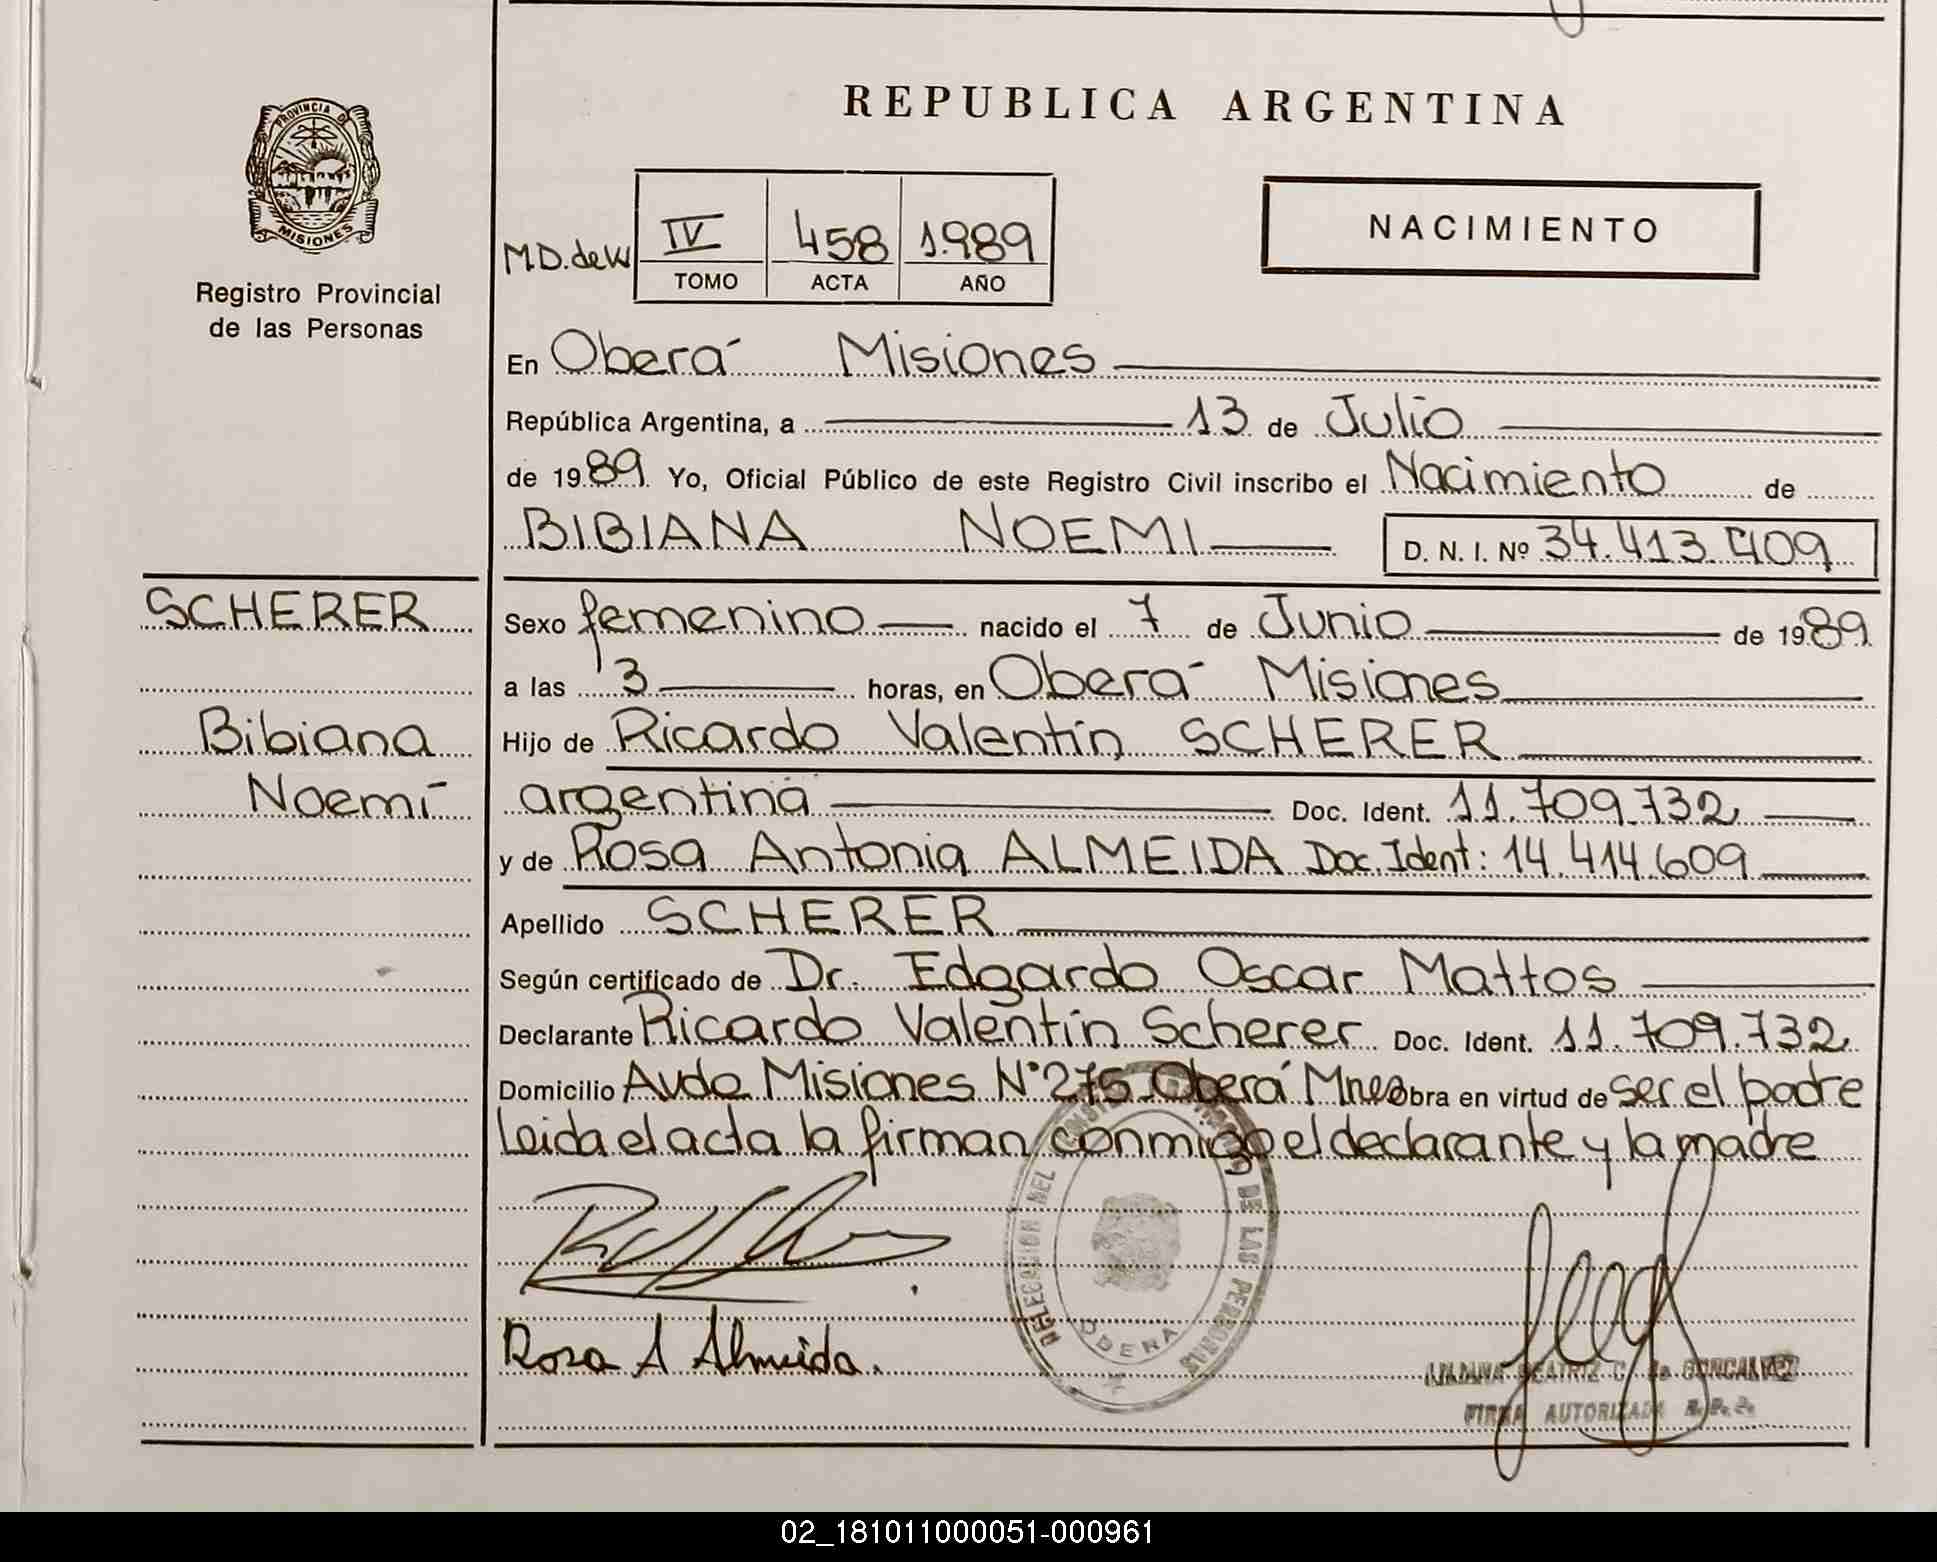 REPUBLICA ARGENTINA
PROVINCIA DE
MISIONES
Registro Provincial
de las Personas
NACIMIENTO
M.D. de W IV 458 1.989
TOMO ACTA AÑO
En Oberá Misiones
República Argentina, a 13 de Julio
de 1989 Yo, Oficial Público de este Registro Civil inscribo el Nacimiento de
BIBIANA NOEMI D. N. I. Nº 34.413.409
SCHERER
Bibiana
Noemí
Sexo femenino nacido el 7 de Junio de 1989
a las 3 horas, en Oberá Misiones
Hijo de Ricardo Valentín SCHERER
argentina Doc. Ident. 11.709.732
y de Rosa Antonia ALMEIDA Doc. Ident: 14.414.609
Apellido SCHERER
Según certificado de Dr. Edgardo Oscar Mattos
Declarante Ricardo Valentín Scherer Doc. Ident. 11.709.732
Domicilio Avda Misiones N° 275 Oberá Mnes Obra en virtud de ser el padre
Leida el acta la firman conmigo el declarante y la madre
DELEGACION DEL REGISTRO DE LAS PERSONAS
OBERA
Rosa A Almeida.
BEATRIZ C. de GONCALVEZ
FIRMA AUTORIZADA R. P. P.
02_181011000051-000961